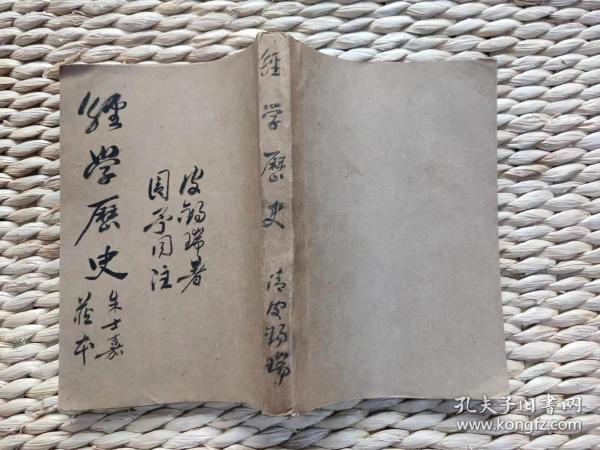 經學歷史
皮錫瑞著
周予同注
朱士嘉
藏本
經学歷史
清皮錫瑞
孔夫子旧书网
www.kongfz.com